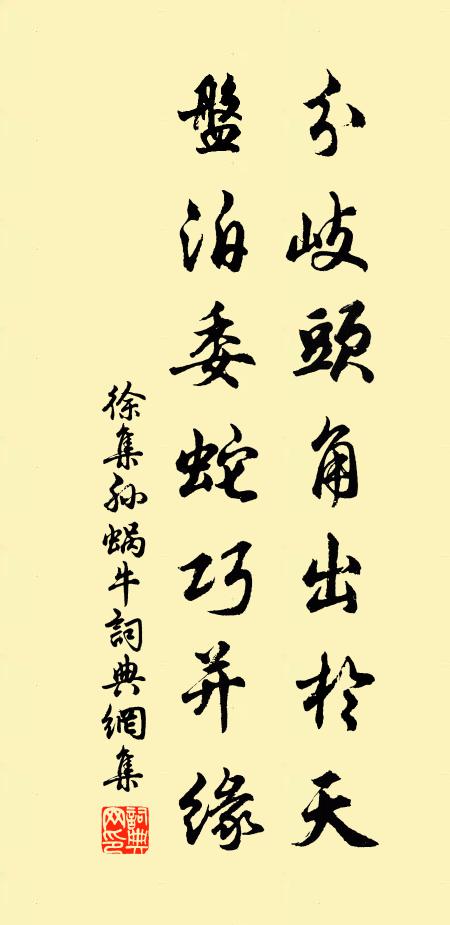 分岐頭角出於天
盤泊委蛇巧并緣
徐集孙蝸牛詞典網集
詞典網印